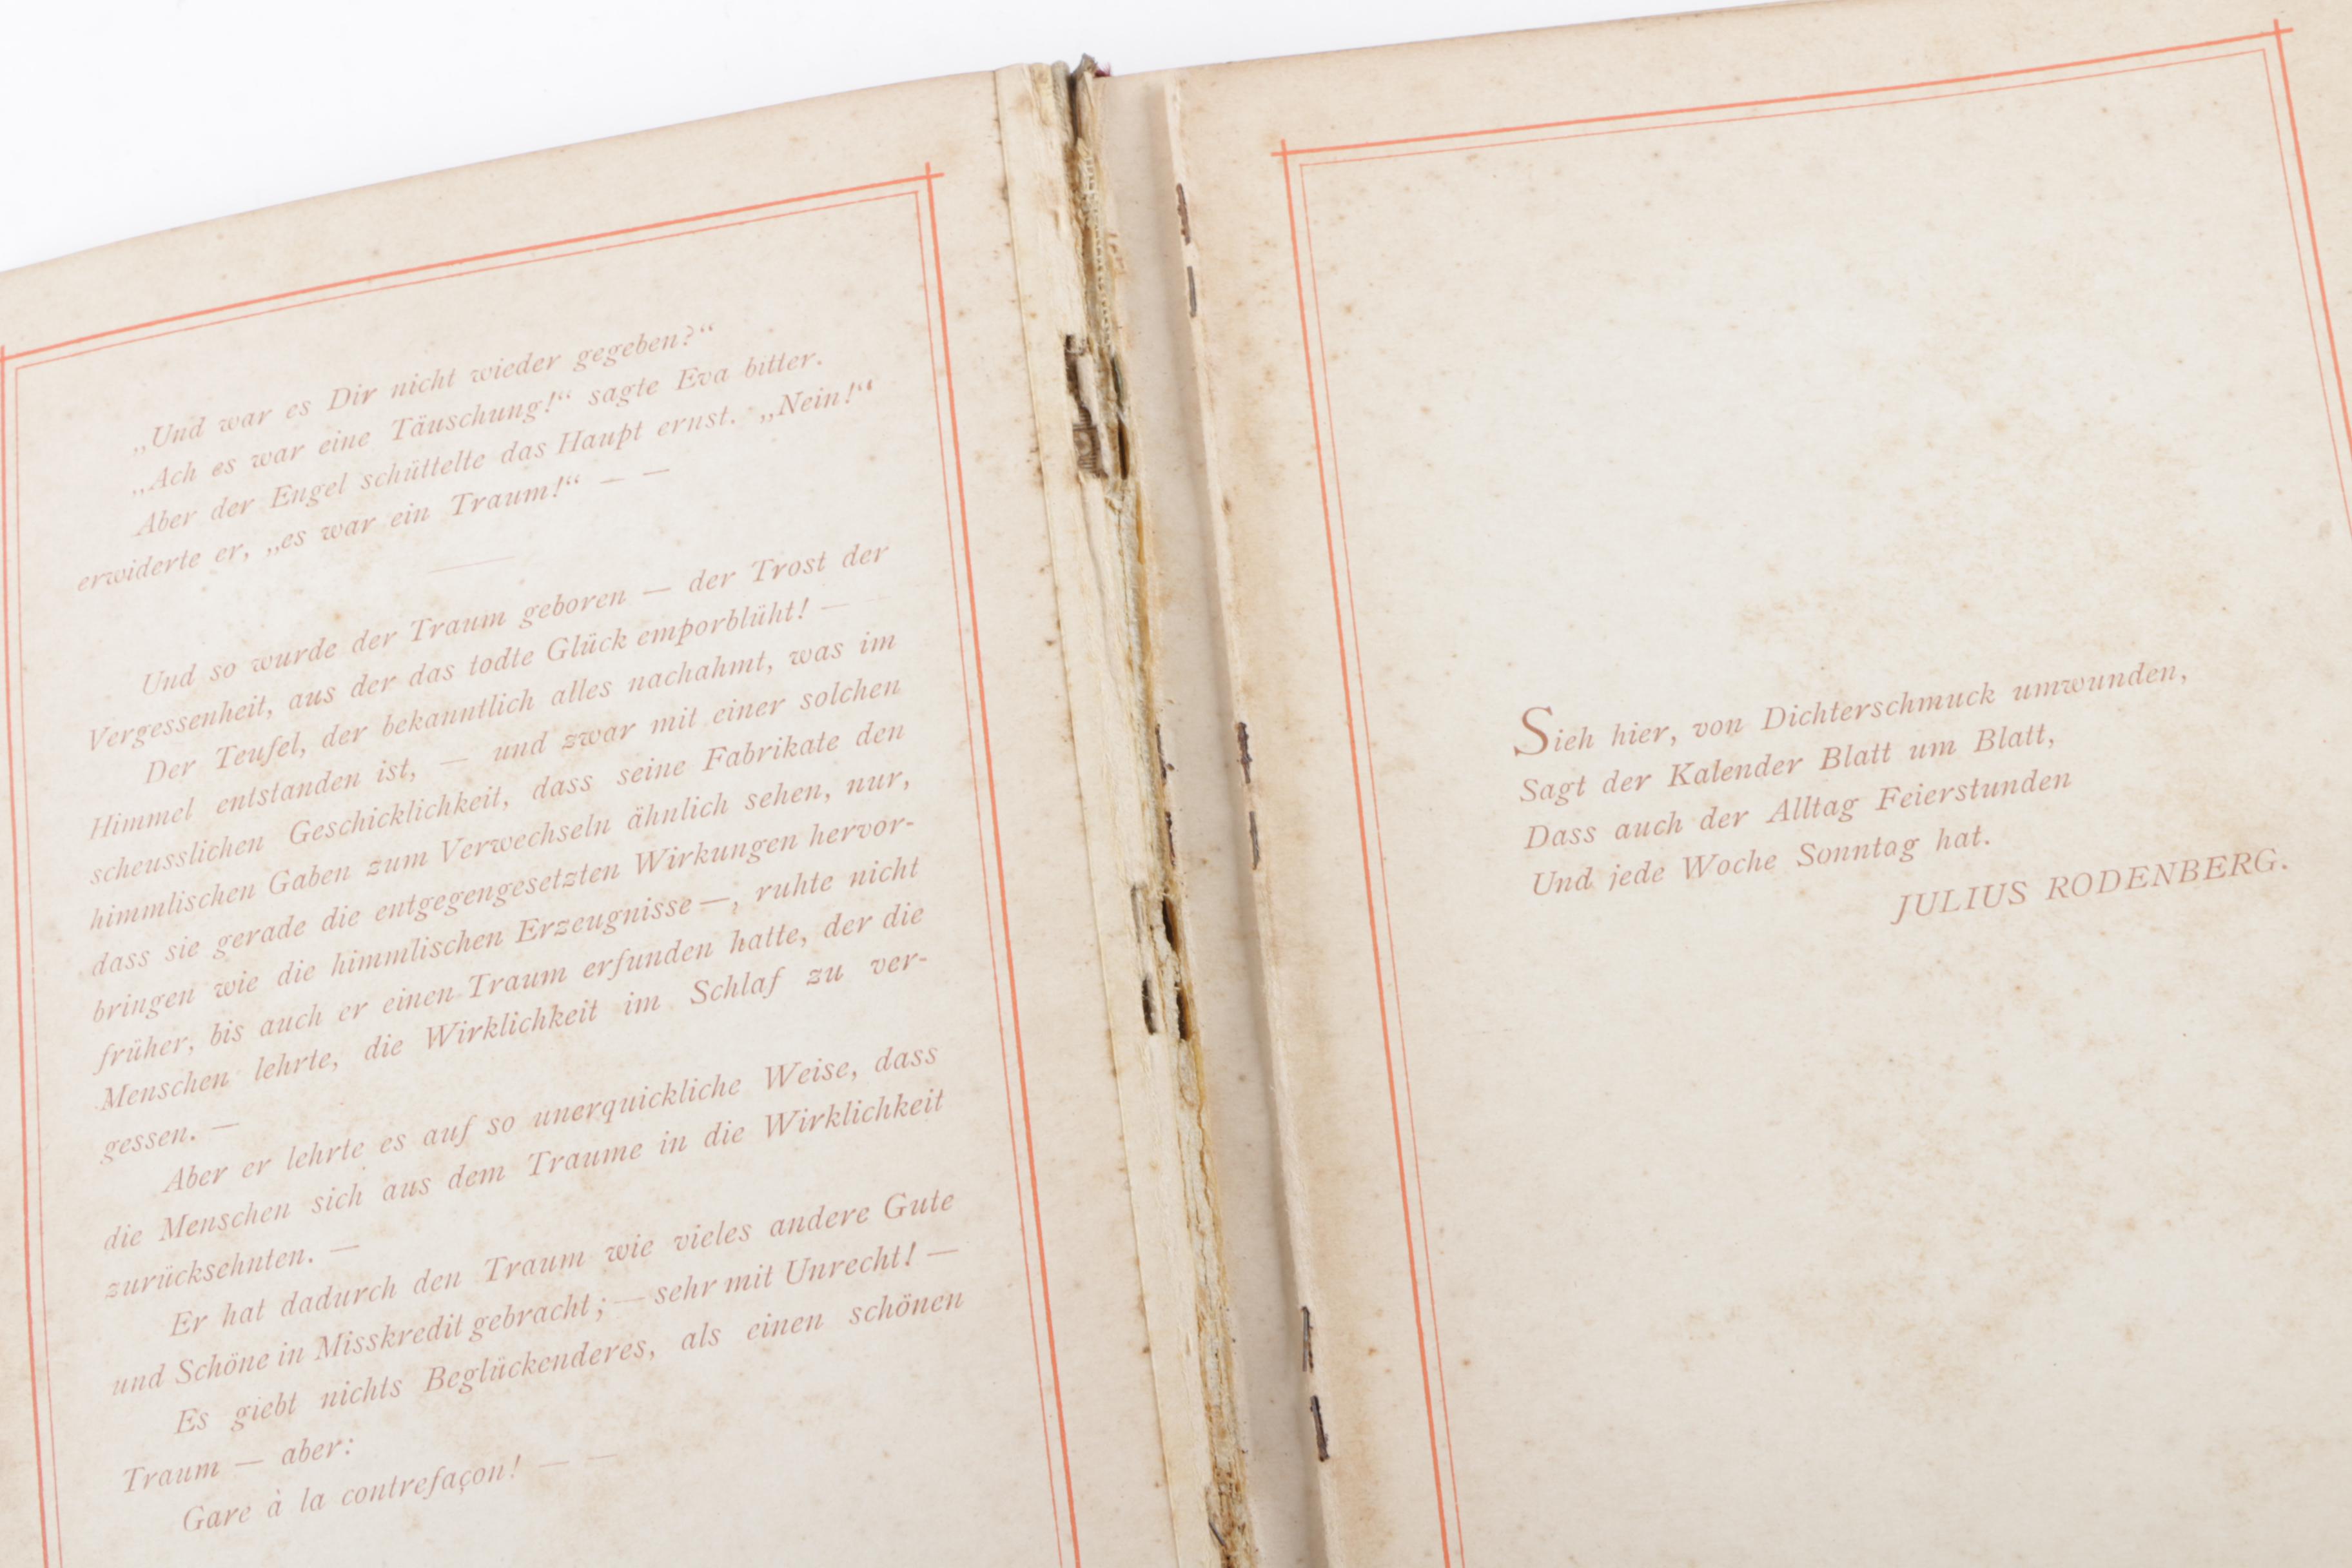 „Und war es Dir nicht wieder gegeben?“
„Ach es war eine Täuschung!“ sagte Eva bitter.
Aber der Engel schüttelte das Haupt ernst. „Nein!“
erwiderte er, „es war ein Traum!“ — —
Und so wurde der Traum geboren — der Trost der
Vergessenheit, aus der das todte Glück emporblüht! —
Der Teufel, der bekanntlich alles nachahmt, was im
Himmel entstanden ist, — und zwar mit einer solchen
scheusslichen Geschicklichkeit, dass seine Fabrikate den
himmlischen Gaben zum Verwechseln ähnlich sehen, nur,
dass sie gerade die entgegengesetzten Wirkungen hervor-
bringen wie die himmlischen Erzeugnisse —, ruhte nicht
früher, bis auch er einen Traum erfunden hatte, der die
Menschen lehrte, die Wirklichkeit im Schlaf zu ver-
gessen. —
Aber er lehrte es auf so unerquickliche Weise, dass
die Menschen sich aus dem Traume in die Wirklichkeit
zurücksehnten. —
Er hat dadurch den Traum wie vieles andere Gute
und Schöne in Misskredit gebracht; — sehr mit Unrecht! —
Es giebt nichts Beglückenderes, als einen schönen
Traum — aber:
Gare à la contrefaçon! — —
Sieh hier, von Dichterschmuck umwunden,
Sagt der Kalender Blatt um Blatt,
Dass auch der Alltag Feierstunden
Und jede Woche Sonntag hat.
JULIUS RODENBERG.